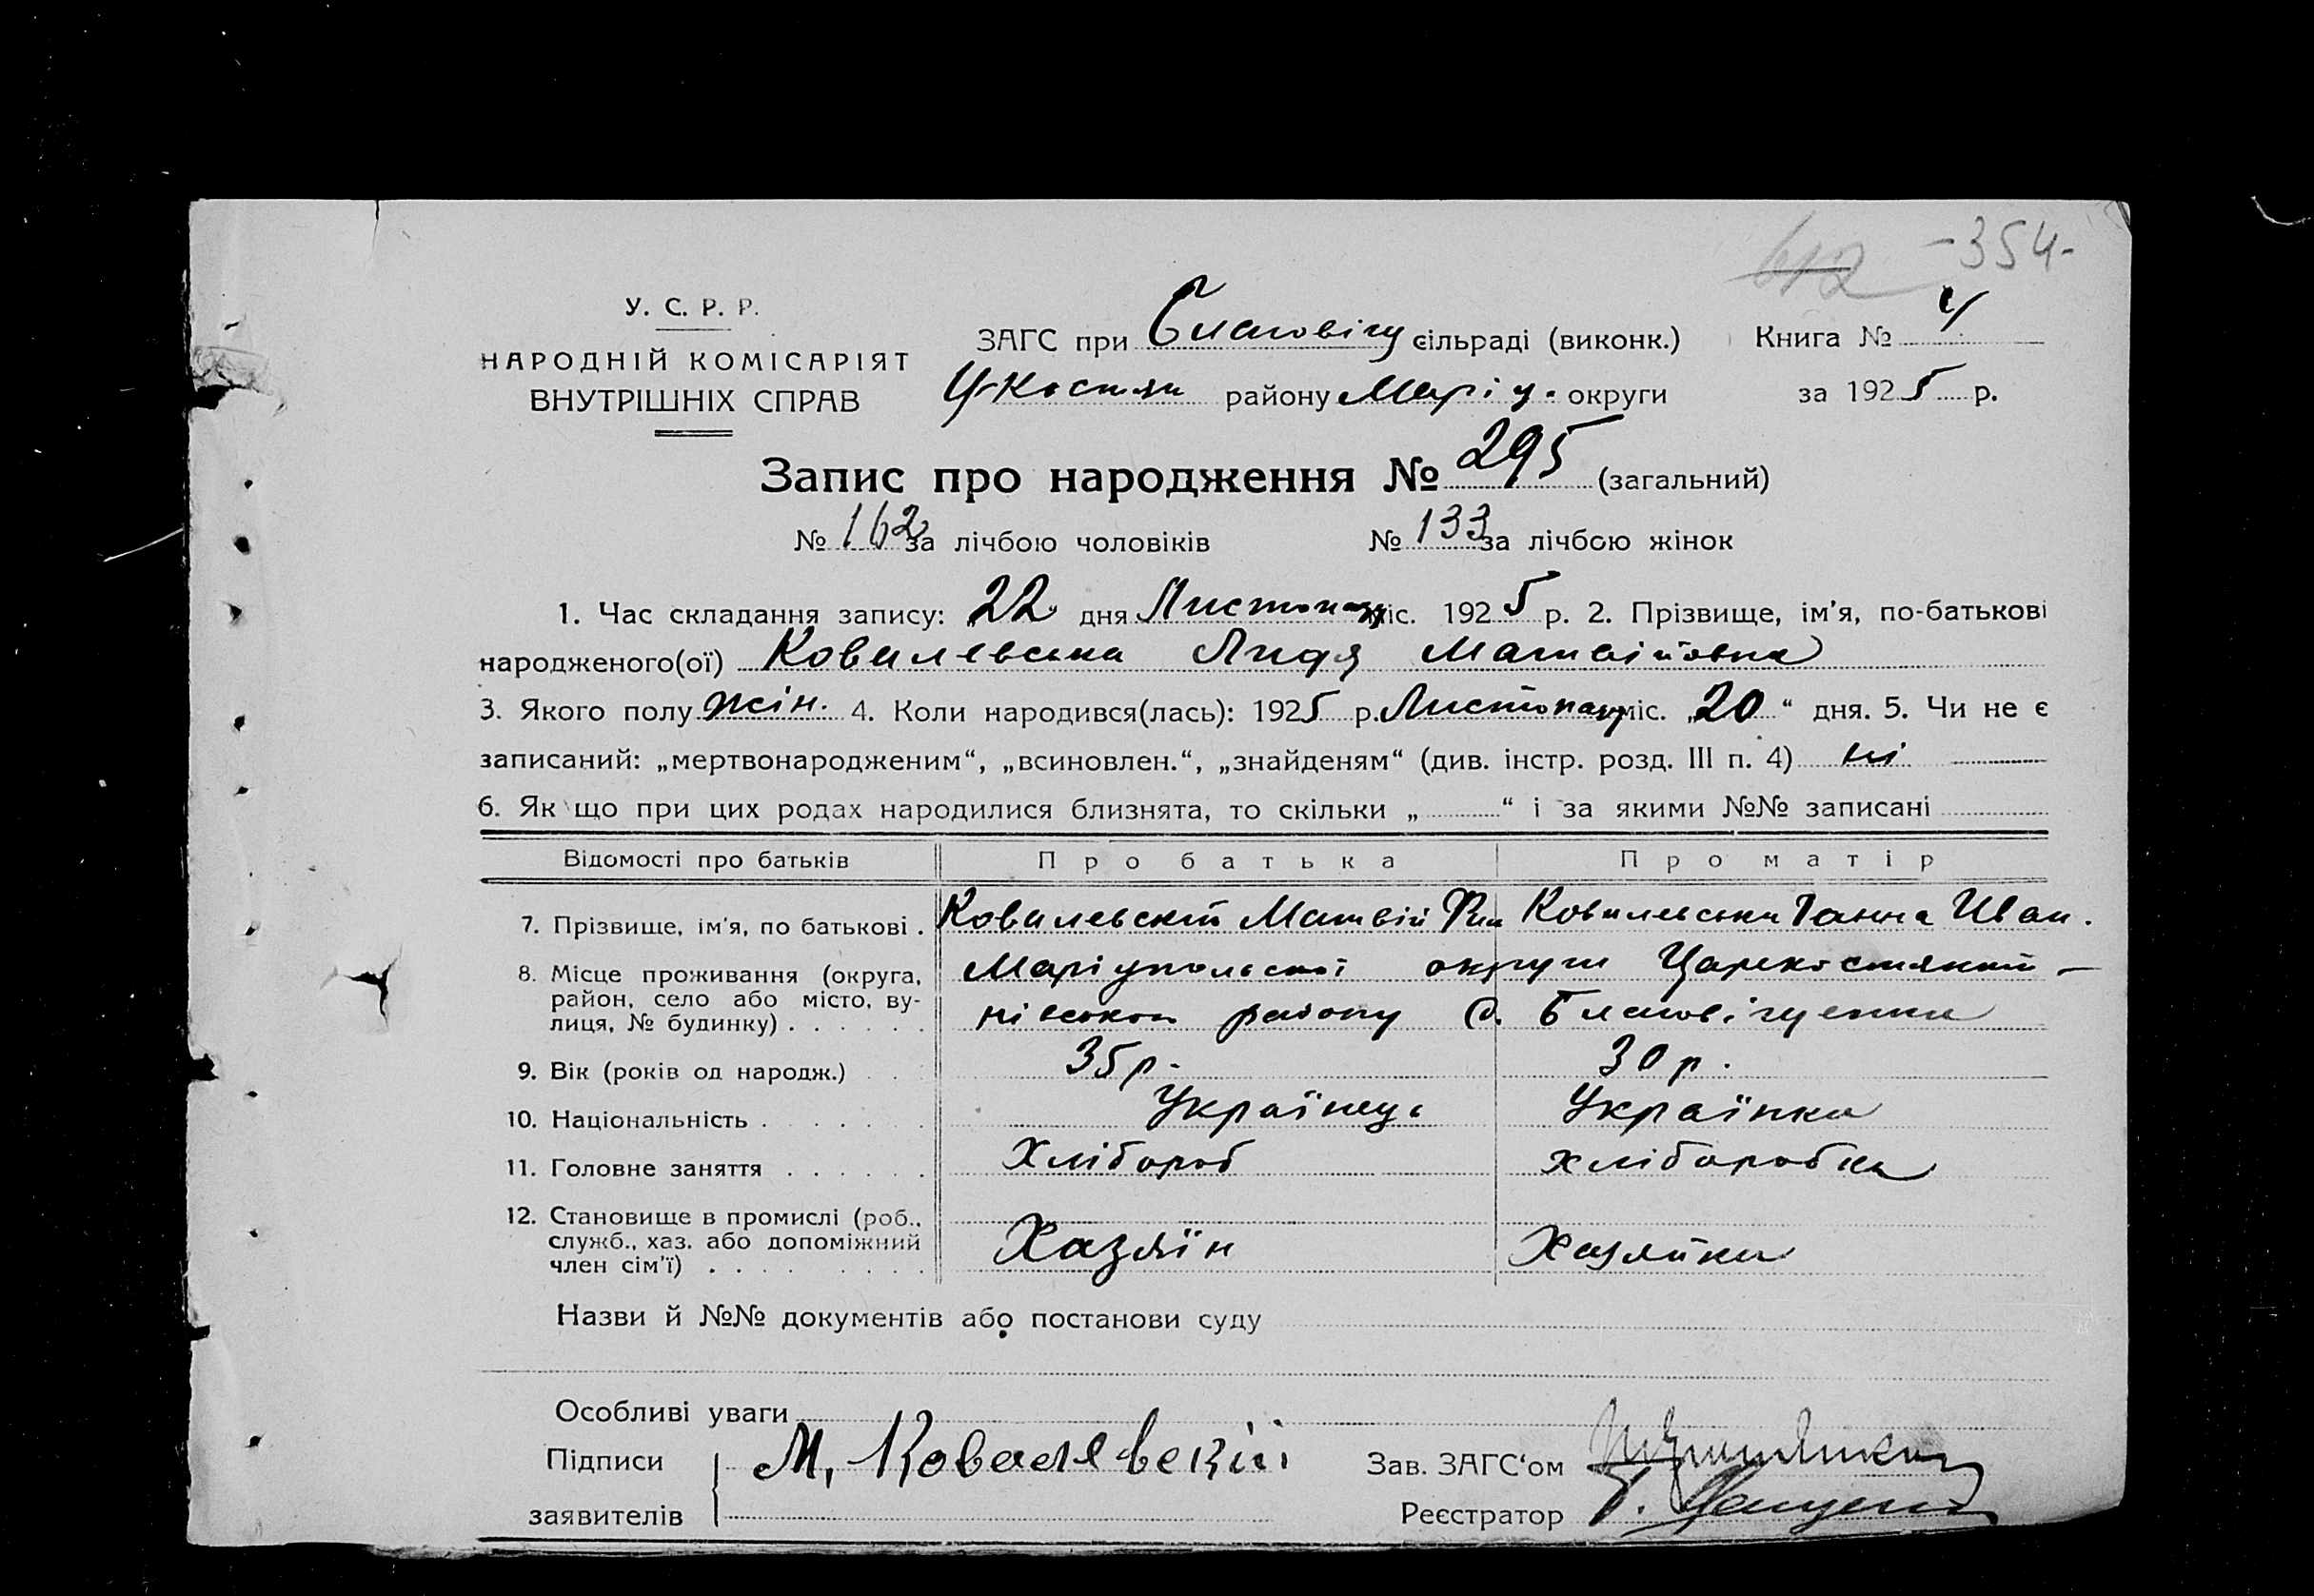 612 -354-
У. С. Р. Р.
НАРОДНІЙ КОМІСАРІЯТ
ВНУТРІШНІХ СПРАВ
ЗАГС при Благовіщ сільраді (виконк.) Книга № 4
Ц-Костян району Маріу. округи за 1925 р.
Запис про народження № 295 (загальний)
№ 162 за лічбою чоловіків № 133 за лічбою жінок
1. Час складання запису: „22 дня Листопаду міс. 1925 р. 2. Прізвище, ім'я, по-батькові
народженого(ої) Ковалевська Лидя Матвійовна
3. Якого полу жін. 4. Коли народився(лась): 1925 р. Листопаду міс. „20“ дня. 5. Чи не є
записаний: „мертвонародженим“, „всиновлен.“, „знайденям“ (див. інстр. розд. III п. 4) ні
6. Як що при цих родах народилися близнята, то скільки „ “ і за якими №№ записані
Відомості про батьків Про батька Про матір
7. Прізвище, ім'я, по батькові . Ковалевскій Матвій Ковалевська Ганна Иван.
8. Місце проживання (округа, район, село або місто, вулиця, № будинку) Маріупольської округи Царекостянти-
нівского району С. Благовіщенка
9. Вік (років од народж.) 35 р. 30 р.
10. Національність Українець Українка
11. Головне заняття Хлібороб хліборобка
12. Становище в промислі (роб., служб., хаз. або допоміжний член сім'ї) Хазяїн Хазяйка
Назви й №№ документів або постанови суду
Особливі уваги
Підписи М, Ковалявскій Зав. ЗАГС'ом
заявителів Реєстратор